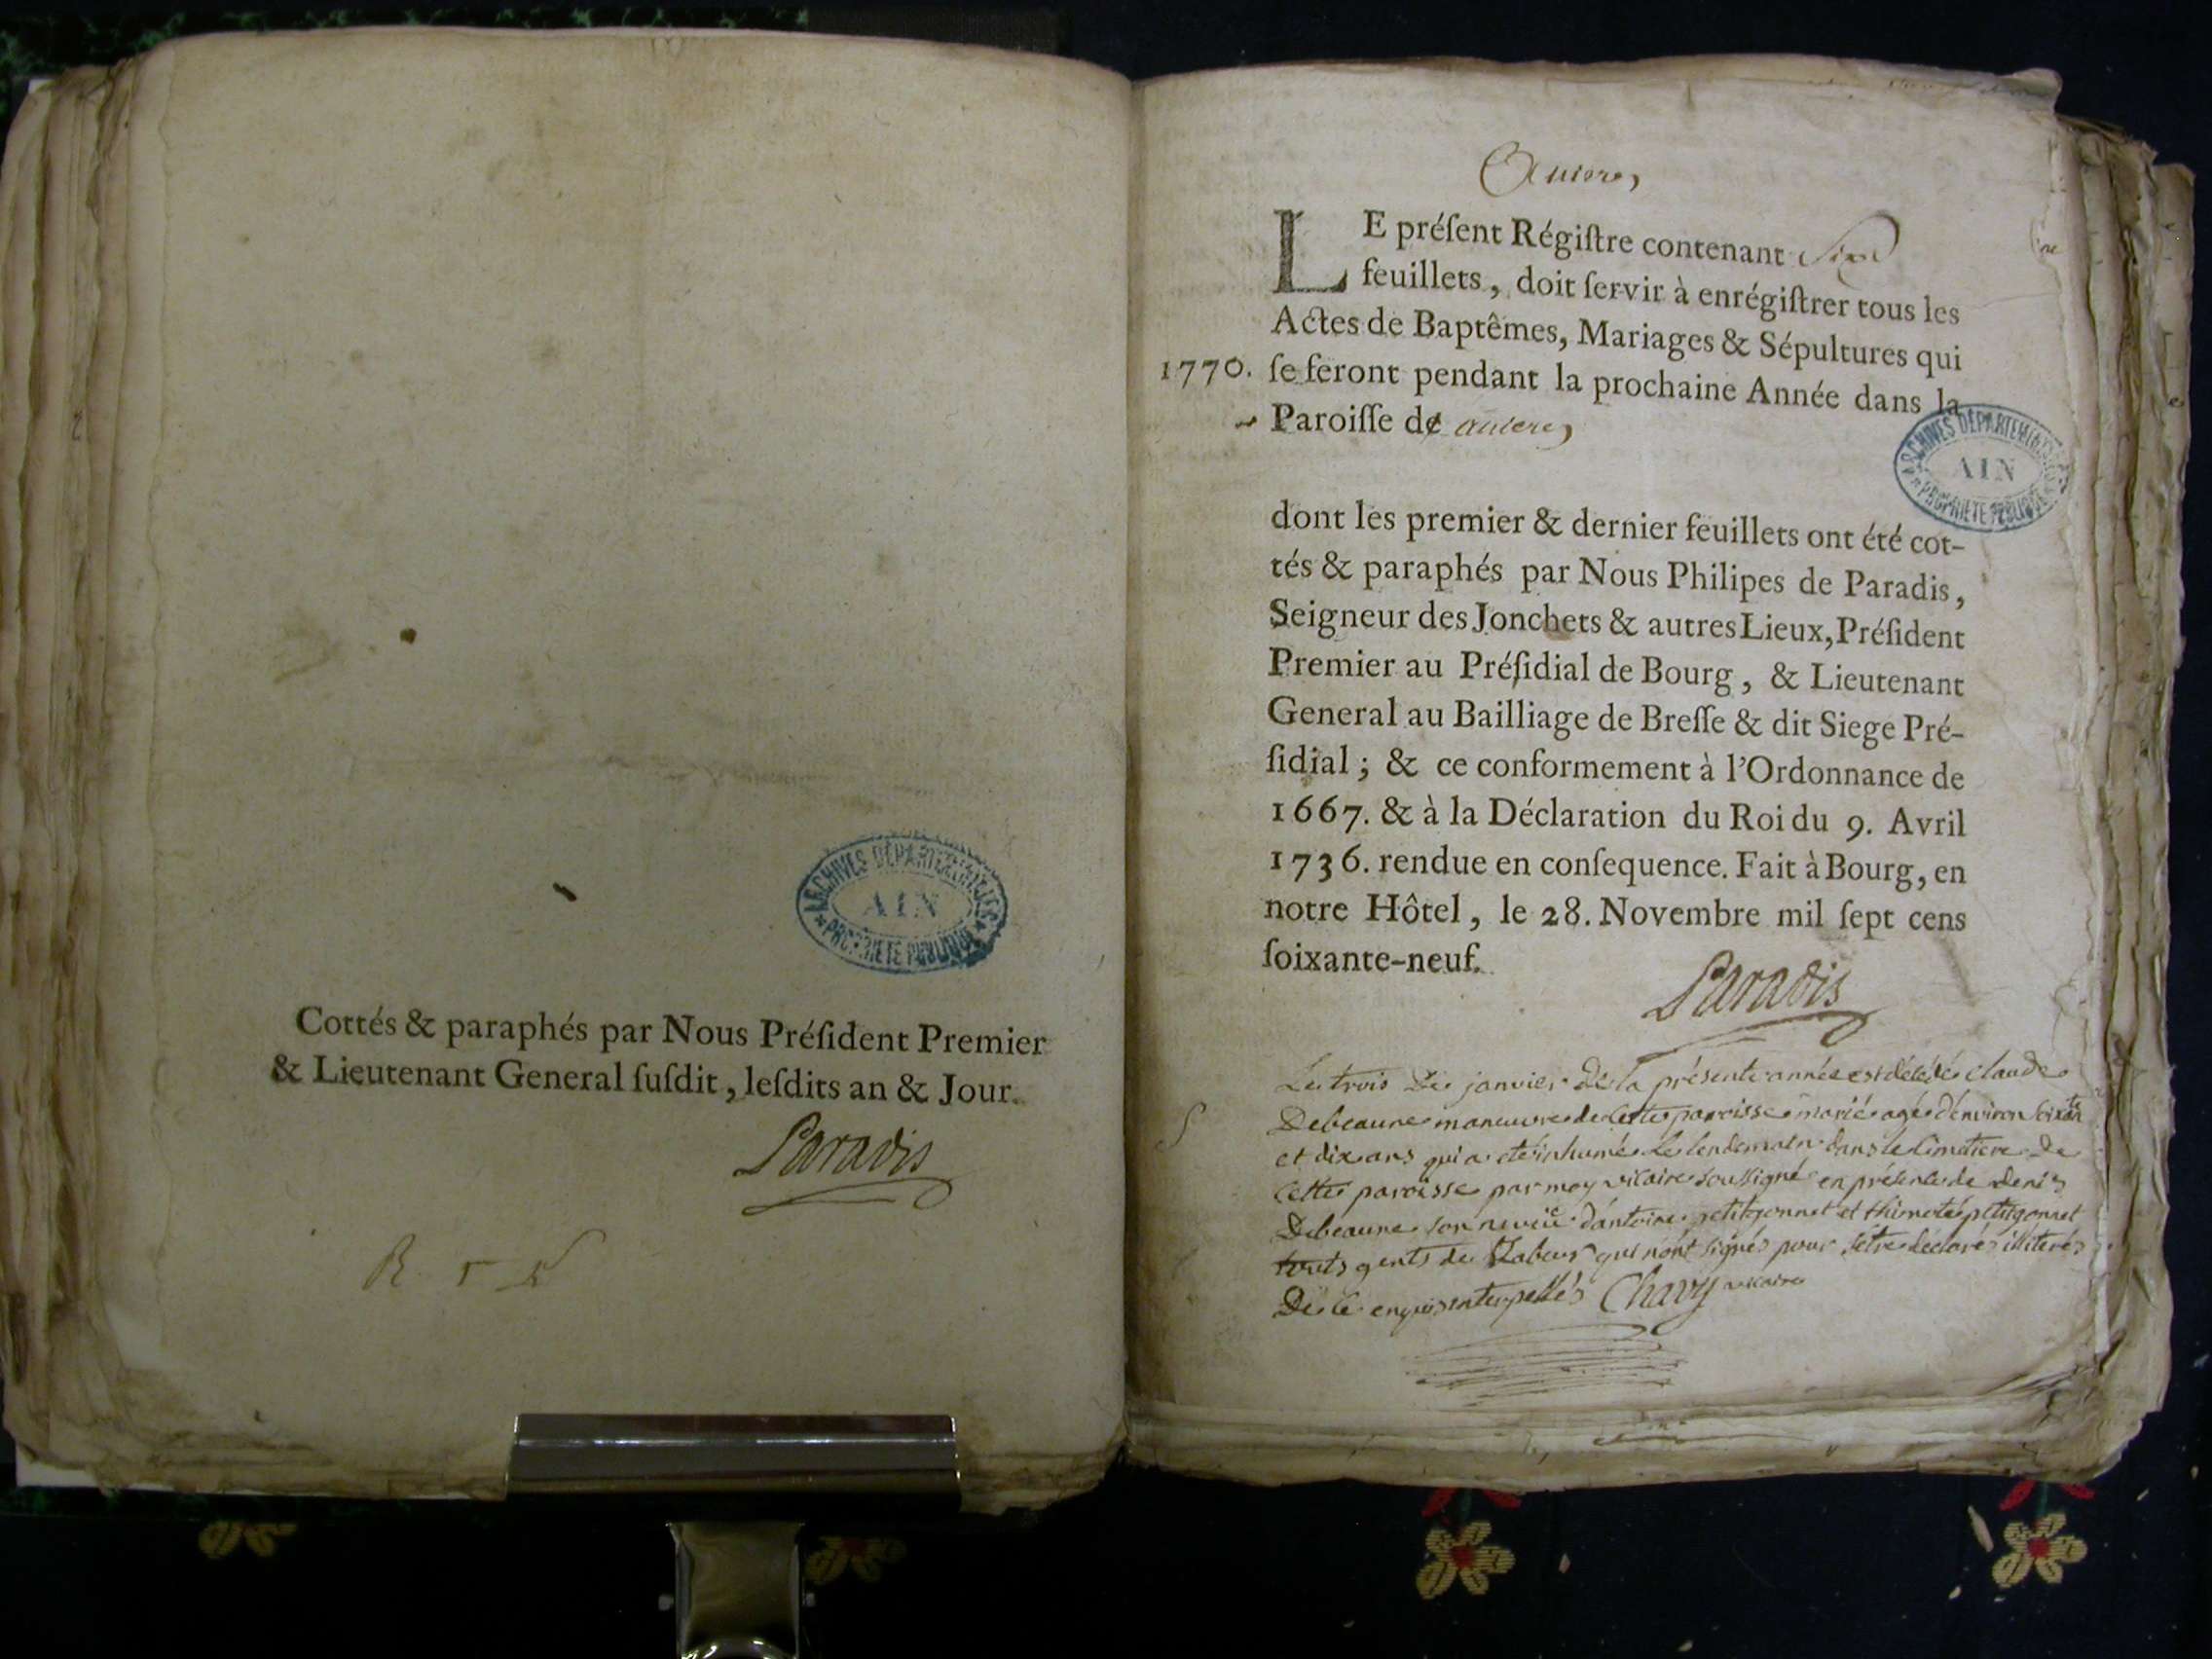 ARCHIVES DÉPARTEMENTALES
AIN
PROPRIETE PUBLIQUE
Cottés & paraphés par Nous Préſident Premier
& Lieutenant General ſuſdit, leſdits an & Jour.
Paradis
LE préſent Régiſtre contenant Six
feuillets, doit ſervir à enrégiſtrer tous les
Actes de Baptêmes, Mariages & Sépultures qui
1770. ſe feront pendant la prochaine Année dans la
Paroiſſe de
ARCHIVES DÉPARTEMENTALES
AIN
PROPRIETE PUBLIQUE
dont les premier & dernier feuillets ont été cot-
tés & paraphés par Nous Philipes de Paradis,
Seigneur des Jonchets & autres Lieux, Préſident
Premier au Préſidial de Bourg, & Lieutenant
General au Bailliage de Breſſe & dit Siege Pré-
ſidial; & ce conformement à l'Ordonnance de
1667. & à la Déclaration du Roi du 9. Avril
1736. rendue en conſequence. Fait à Bourg, en
notre Hôtel, le 28. Novembre mil ſept cens
ſoixante-neuf.
Paradis
Le trois De janvier de la présente année est décédé claude
Debeaune maneuvre de cette paroisse marié agé d'environ soixte
et dix ans qui a eté inhumé le lendemain dans le cimetiere de
cette paroisse par moy vicaire soussigné en présence de denis
Debeaune son neveu d'antoine petitjonnet et thimoté petitjonnet
touts gents de Labeur qui n'ont signés pour s'etre déclarés illiterés
De ce enquis interpellés Chavy vicaire